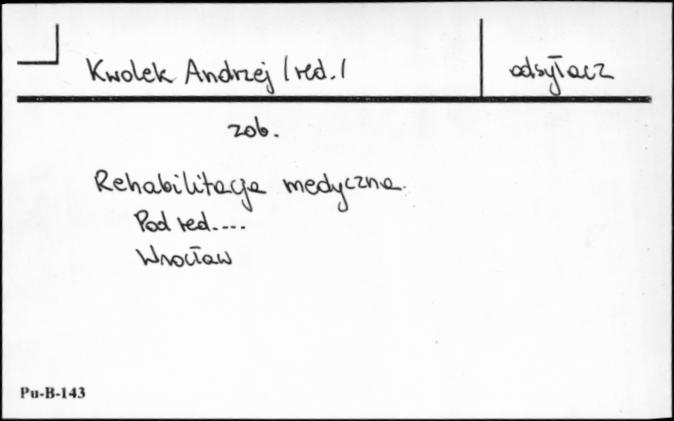 Kwolek Andrzej /red./
odsyłacz
zob.
Rehabilitacja medyczna.
Pod red....
Wrocław
Pu-B-143